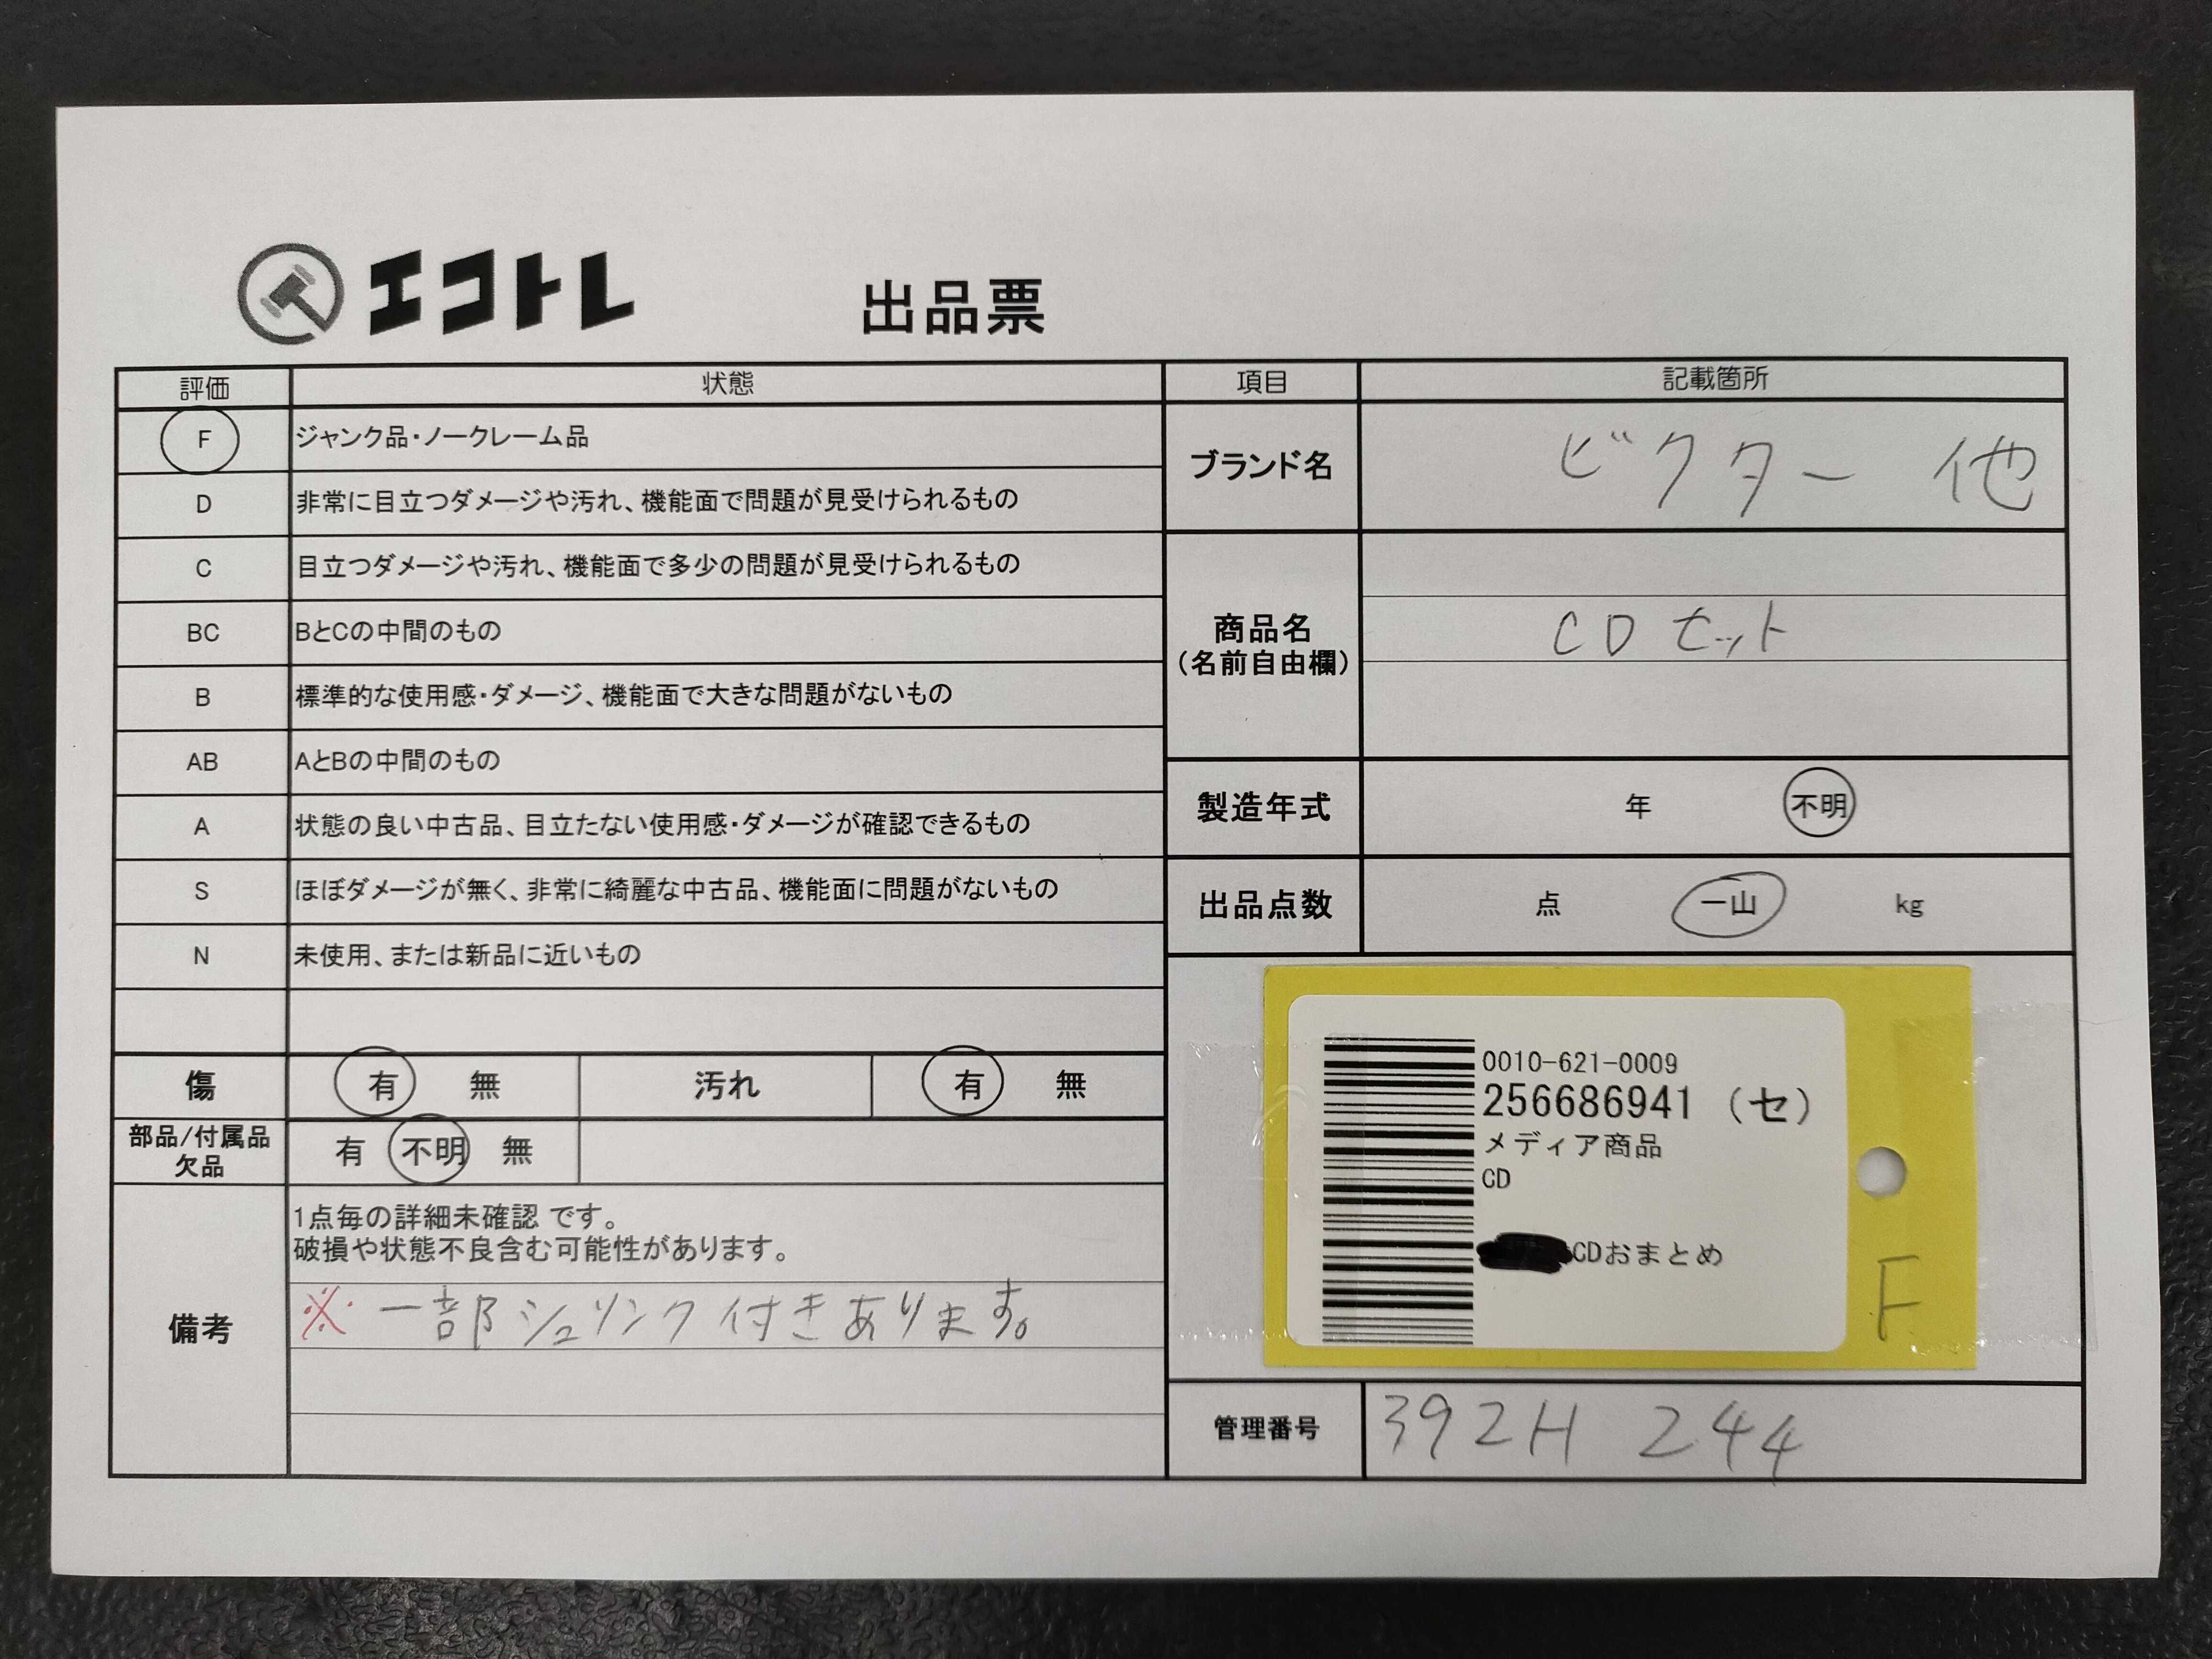 エコトレ
出品票
評価 状態
F ジャンク品・ノークレーム品
D 非常に目立つダメージや汚れ、機能面で問題が見受けられるもの
C 目立つダメージや汚れ、機能面で多少の問題が見受けられるもの
BC BとCの中間のもの
B 標準的な使用感・ダメージ、機能面で大きな問題がないもの
AB AとBの中間のもの
A 状態の良い中古品、目立たない使用感・ダメージが確認できるもの
S ほぼダメージが無く、非常に綺麗な中古品、機能面に問題がないもの
N 未使用、または新品に近いもの
傷 有 無 汚れ 有 無
部品/付属品
欠品
有 不明 無
備考
1点毎の詳細未確認 です。
破損や状態不良含む可能性があります。
※ 一部シュリンク付きあります。
項目 記載箇所
ブランド名 ビクター 他
商品名
(名前自由欄)
CDセット
製造年式 年 不明
出品点数 点 一山 kg
0010-621-0009
256686941 (セ)
メディア商品
CD
CDおまとめ
F
管理番号 392H 244